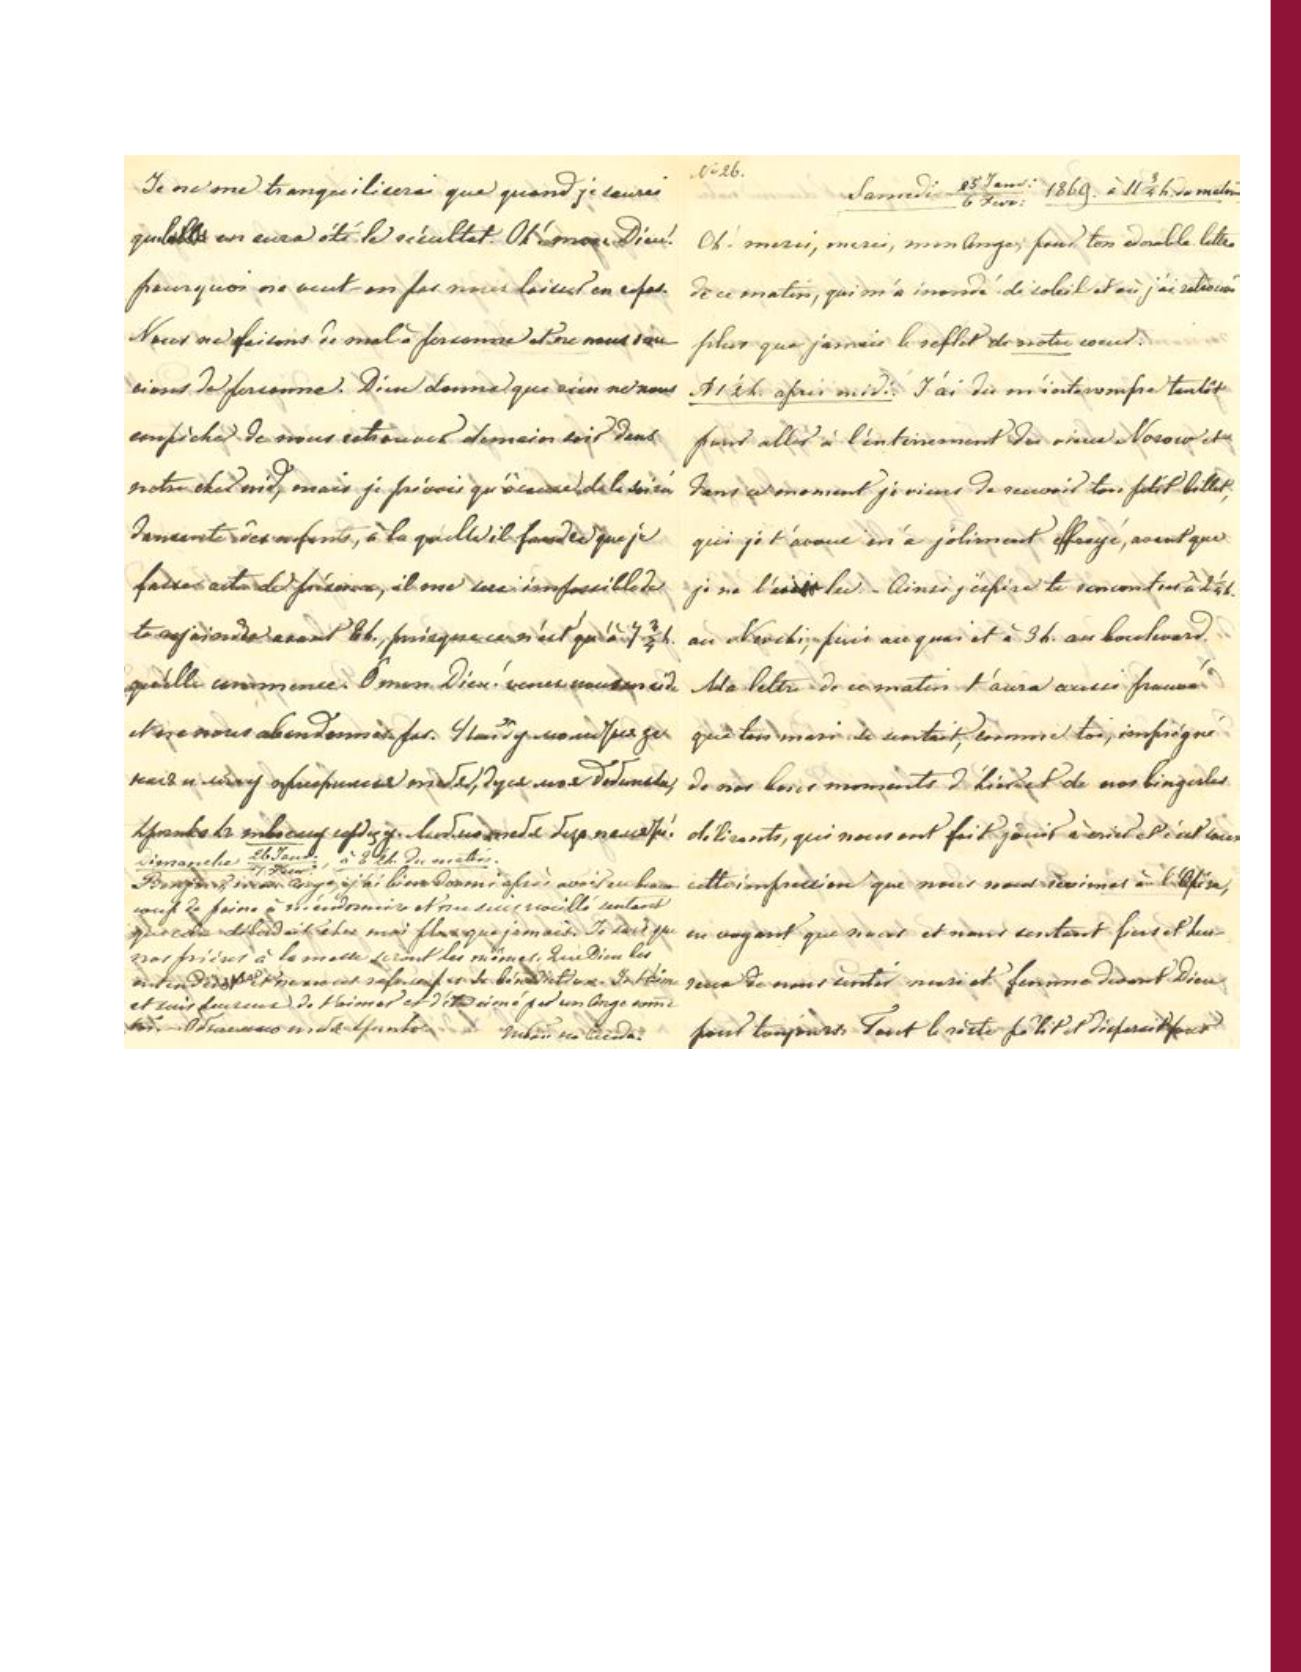 Je ne me tranquiliserai que quand je saurai
quelle en aura été le résultat. Oh! mon Dieu!
pourquoi ne veut-on pas nous laisser en repos.
Nous ne faisons de mal à personne et ne nous sou-
cions de personne. Dieu donne que rien ne nous
empêche de nous retrouver demain soir dans
notre cher nid, mais je prévois qu'à cause de la soirée
dansante des enfants, à la quelle il faudra que je
fasse acte de présence, il me sera impossible de
te rejoindre avant 8h., puisque ce n'est qu'à 7 3/4 h.
qu'elle commence. O mon Dieu! venez nous en aide
et ne nous abandonnez pas.
Dimanche 26 Janv: / 7 Fevr:, à 8 h. du matin.
Bonjour, cher Ange, j'ai bien dormi après avoir eu beau-
coup de peine à m'endormir et me suis reveillé sentant
que cela débordait chez moi plus que jamais. Je sais que
nos prières à la messe seront les mêmes. Que Dieu les
entende et ne nous refuse pas Sa bénédiction. Je t'aime
et suis heureux de t'aimer et d'être aimé par un Ange comme
toi.
No 26.
Samedi 25 Janv: / 6 Fevr: 1869. à 11 3/4 h. du matin
Oh! merci, merci, mon Ange, pour ton adorable lettre
de ce matin, qui m'a inondé de soleil et où j'ai retrouvé
plus que jamais le reflet de notre coeur.
après midi: J'ai du m'interrompre tantôt
pour aller à l'enterrement du vieux et
dans ce moment je viens de recevoir ton petit billet,
qui je t'avoue m'a joliment effrayé, avant que
je ne l'eus lu. – Ainsi j'espère te rencontrer à
au Nevski, puis au quai et à 3 h. au boulevard.
Ma lettre de ce matin t'aura aussi prouvé
que ton mari se sentait, comme toi, imprégné
de nos bons moments d'hier et de nos bingerles
délirants, qui nous ont fait jouir à crier et c'est sous
cette impression que nous nous revimes à l'Opéra,
en voyant que nous et nous sentant fiers et heu-
reux de nous sentir mari et femme devant Dieu
pour toujours. Tout le reste pâlit et disparait pour